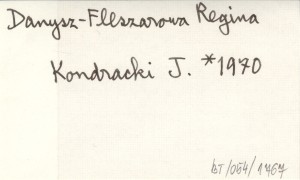 Danysz-Fleszarowa Regina
Kondracki J. *1970
bT/054/1767